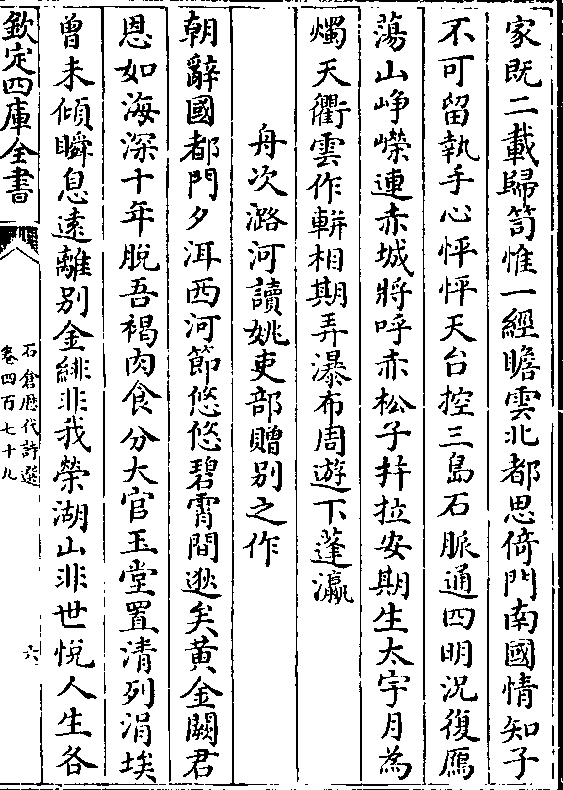 家既二載歸笥惟一經瞻雲北都思倚門南國情知子
不可留執手心怦怦天台控三島石脈通四明況復鴈
蕩山崢嶸連赤城將呼赤松子幷拉安期生太宇月為
燭天衢雲作輧相期弄瀑布周遊下蓬瀛
舟次潞河讀姚吏部贈別之作
朝辭國都門夕洱西河節悠悠碧霄間逖矣黃金闕君
恩如海深十年脫吾褐肉食分大官玉堂置清列涓埃
曾未傾瞬息遠離別金緋非我榮湖山非世悅人生各
欽定四庫全書
石倉歷代詩選
卷四百七十九
六